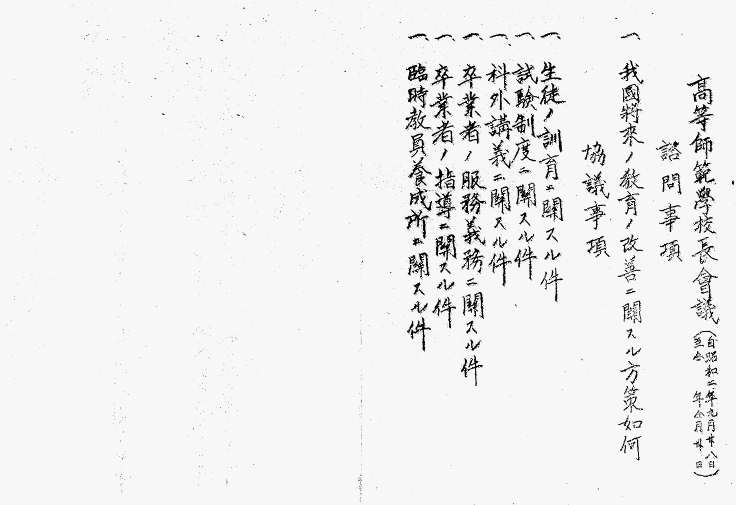 高等師範學校長會議(自昭和二年九月廿八日
至仝年仝月廿日)
諮問事項
一、我國將來ノ教育ノ改善ニ關スル方策如何
協議事項
一、生徒ノ訓育ニ關スル件
一、試驗制度ニ關スル件
一、科外講義ニ關スル件
一、卒業者ノ服務義務ニ關スル件
一、卒業者ノ指導ニ關スル件
一、臨時教員養成所ニ關スル件